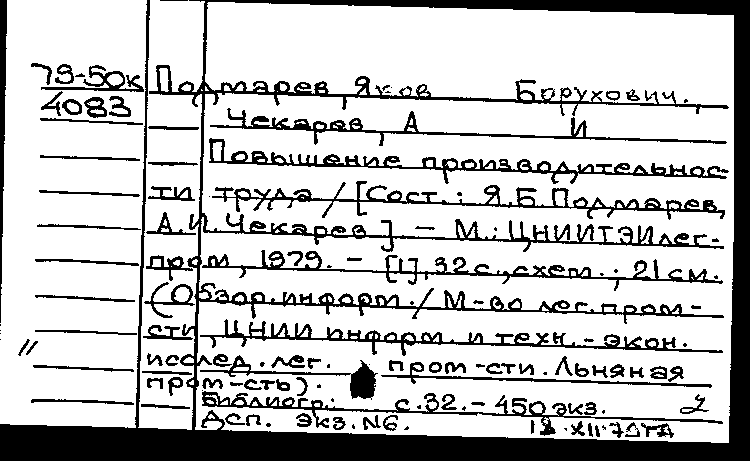 79-50к Подмарев, Яков Борухович.,
4083 Чекарев, А И
Повышение производительнос-
ти труда / [Сост.: Я.Б. Подмарев,
А.И. Чекарев]. – М.: ЦНИИТЭИлег-
пром, 1979. – [1], 32 с., схем.; 21 см.
(Обзор. информ. / М-во лег. пром-
сти, ЦНИИ информ. и техн.-экон.
исслед. лег. пром-сти. Льняная
пром-сть).
Библиогр.: с. 32. – 450 экз. 2
Дсп. Экз. N6.